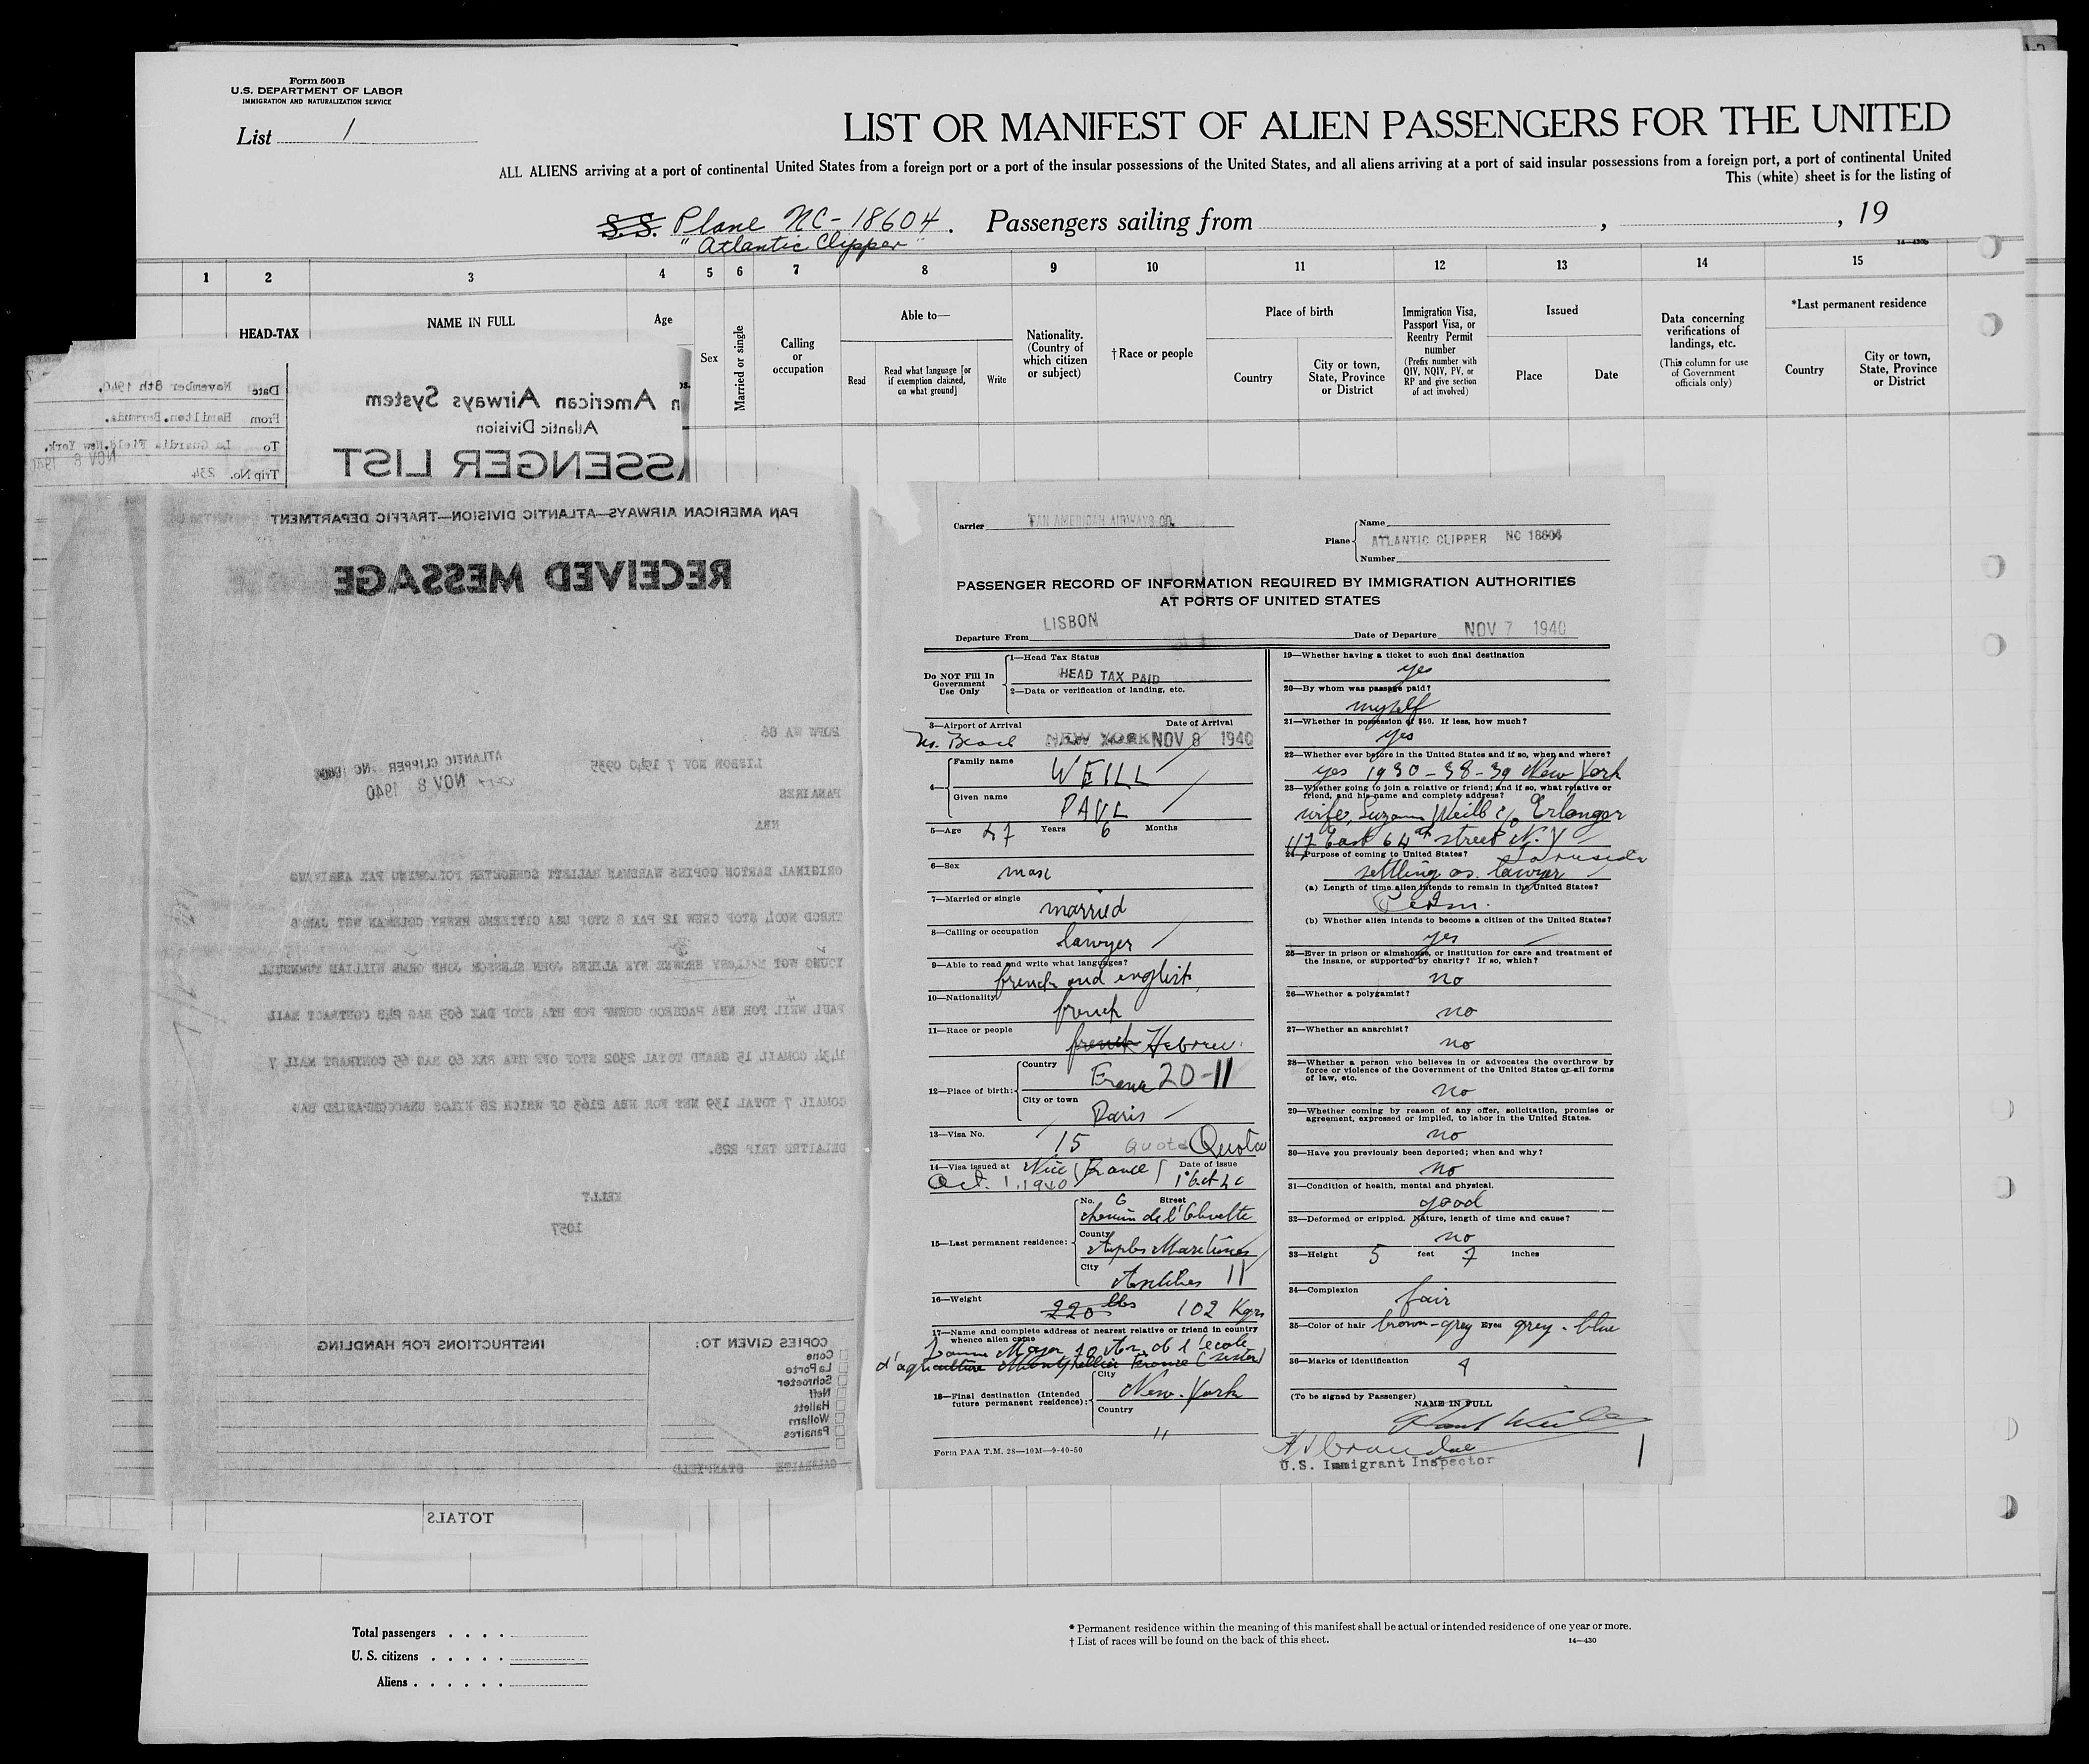 Form 500 B
U.S. DEPARTMENT OF LABOR
IMMIGRATION AND NATURALIZATION SERVICE
List 1
LIST OR MANIFEST OF ALIEN PASSENGERS FOR THE UNITED
ALL ALIENS arriving at a port of continental United States from a foreign port or a port of the insular possessions of the United States, and all aliens arriving at a port of said insular possessions from a foreign port, a port of continental United
This (white) sheet is for the listing of
S.S. Plane NC-18604. Passengers sailing from , , 19
"Atlantic Clipper"
14—430b
1 2 3 4 5 6 7 8 9 10 11 12 13 14 15
HEAD-TAX
NAME IN FULL
Age
Sex
Married or single
Calling or occupation
Able to—
Read
Read what language [or if exemption claimed, on what ground]
Write
Nationality. (Country of which citizen or subject)
†Race or people
Place of birth
Country
City or town, State, Province or District
Immigration Visa, Passport Visa, or Reentry Permit number
(Prefix number with QIV, NQIV, PV, or RP and give section of act involved)
Issued
Place
Date
Data concerning verifications of landings, etc.
(This column for use of Government officials only)
*Last permanent residence
Country
City or town, State, Province or District
n American Airways System
Atlantic Division
ASSENGER LIST
Date November 8th 1940.
From Hamilton, Bermuda.
To La Guardia Field, New York.
NOV 8 1940
Trip No. 234
PAN AMERICAN AIRWAYS—ATLANTIC DIVISION—TRAFFIC DEPARTMENT
RECEIVED MESSAGE
LISBON NOV 7 1940 0935
ATLANTIC CLIPPER NC 18604
NOV 8 1940
PANAIRES
NBA
ORIGINAL BARTON COPIES WAREMAN HALLETT SCHROETER FOLLOWING PAX ARRIVING
STOP CREW 12 PAX 8 STOP USA CITIZENS HENRY COLEMAN WST JAMES
YOUNG WOT MALLORY BROWNE NYK ALIENS JOHN SLESSOR JOHN ORME WILLIAM TUNNELL
PAUL WEIL FOR NBA PACHECO FOR HTA STOP PAX 605 BAG CONTRACT MAIL
1434 COMAIL 15 GRAND TOTAL 2302 STOP OFF HTA PAX 60 BAG 65 CONTRACT MAIL 7
COMAIL 7 TOTAL 139 NET FOR NBA 2163 OF WHICH 28 KILOS UNACCOMPANIED BAG
TRIP 226.
KELLY
1057
INSTRUCTIONS FOR HANDLING
COPIES GIVEN TO:
Cone
LaPorte
Schroeter
Neff
Hallett
Wollam
Panaires
GALBRAITH STANDFIELD
TOTALS
Carrier PAN AMERICAN AIRWAYS CO.
Plane
Name
ATLANTIC CLIPPER NC 18604
Number
PASSENGER RECORD OF INFORMATION REQUIRED BY IMMIGRATION AUTHORITIES
AT PORTS OF UNITED STATES
Departure From LISBON
Date of Departure NOV 7 1940
Do NOT Fill In
Government
Use Only
1—Head Tax Status
HEAD TAX PAID
2—Data or verification of landing, etc.
3—Airport of Arrival Date of Arrival
NEW YORK NOV 8 1940
4—
Family name
WEILL
Given name
PAUL
5—Age 47 Years 6 Months
6—Sex
male
7—Married or single
married
8—Calling or occupation
lawyer
9—Able to read and write what languages?
french and english
10—Nationality
french
11—Race or people
french Hebrew
12—Place of birth:
Country
France 20-11
City or town
Paris
13—Visa No.
15 Quota Quota
14—Visa issued at Nice France Date of issue
Oct. 1, 1940 1 Oct 40
15—Last permanent residence:
No. 6 Street
chemin de l'
County
Alpes Maritimes
City
Antibes 11
16—Weight
220 lbs 102 Kgrs
17—Name and complete address of nearest relative or friend in country
whence alien came
de l'école
d'agriculture Montpellier France (sister)
18—Final destination (Intended
future permanent residence):
City
New-York
Country
"
Form PAA T.M. 28—10M—9-40-50
19—Whether having a ticket to such final destination
yes
20—By whom was passage paid?
myself
21—Whether in possession of $50. If less, how much?
yes
22—Whether ever before in the United States and if so, when and where?
yes 1930-38-39 New York
23—Whether going to join a relative or friend; and if so, what relative or
friend, and his name and complete address?
wife, Suzanne Weill c/o Erlanger
117 East 64th street N.Y
24—Purpose of coming to United States?
To reside
settling as lawyer
(a) Length of time alien intends to remain in the United States?
Perm.
(b) Whether alien intends to become a citizen of the United States?
yes
25—Ever in prison or almshouse, or institution for care and treatment of
the insane, or supported by charity? If so, which?
no
26—Whether a polygamist?
no
27—Whether an anarchist?
no
28—Whether a person who believes in or advocates the overthrow by
force or violence of the Government of the United States or all forms
of law, etc.
no
29—Whether coming by reason of any offer, solicitation, promise or
agreement, expressed or implied, to labor in the United States.
no
30—Have you previously been deported; when and why?
no
31—Condition of health, mental and physical.
good
32—Deformed or crippled. Nature, length of time and cause?
no
33—Height 5 feet 7 inches
34—Complexion
fair
35—Color of hair brown-grey Eyes grey-blue
36—Marks of identification
(To be signed by Passenger)
NAME IN FULL
Paul Weill
U.S. Immigrant Inspector
1
Total passengers
U. S. citizens
Aliens
* Permanent residence within the meaning of this manifest shall be actual or intended residence of one year or more.
† List of races will be found on the back of this sheet.
14—430